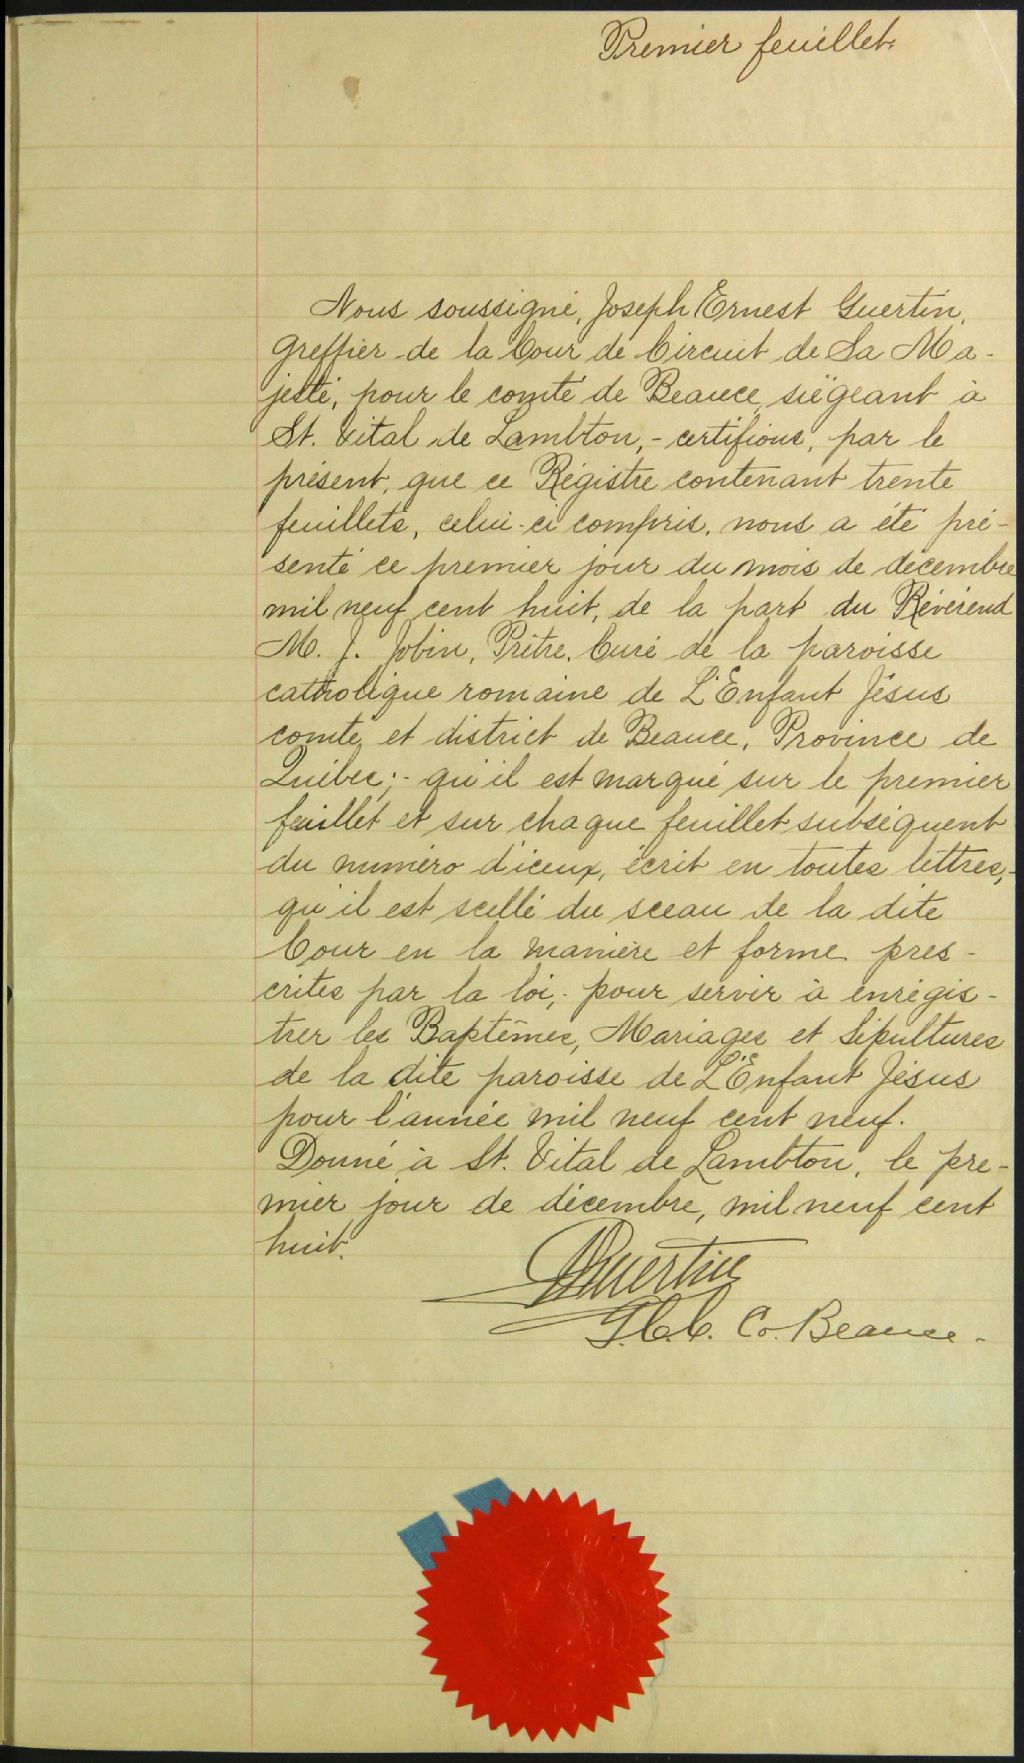 Premier feuillet.
Nous soussigné, Joseph Ernest Guertin,
Greffier de la Cour de Circuit de Sa Ma-
jesté, pour le comté de Beauce, siégeant à
St. Vital de Lambton, - certifions, par le
présent, que ce Régistre contenant trente
feuillets, celui-ci compris, nous a été pré-
senté ce premier jour du mois de décembre
mil neuf cent huit, de la part du Révérend
M. J. Jobin, Prêtre, Curé de la paroisse
catholique romaine de L'Enfant Jésus
comté et district de Beauce, Province de
Québec; - qu'il est marqué sur le premier
feuillet et sur chaque feuillet subséquent
du numéro d'iceux, écrit en toutes lettres, -
qu'il est scellé du sceau de la dite
Cour en la manière et forme pres-
crites par la loi, - pour servir à enrégis-
trer les Baptêmes, Mariages et Sépultures
de la dite paroisse de L'Enfant Jésus
pour l'année mil neuf cent neuf.
Donné à St. Vital de Lambton, le pre-
mier jour de décembre, mil neuf cent
huit.
Guertin
G.C.C. Co. Beauce -